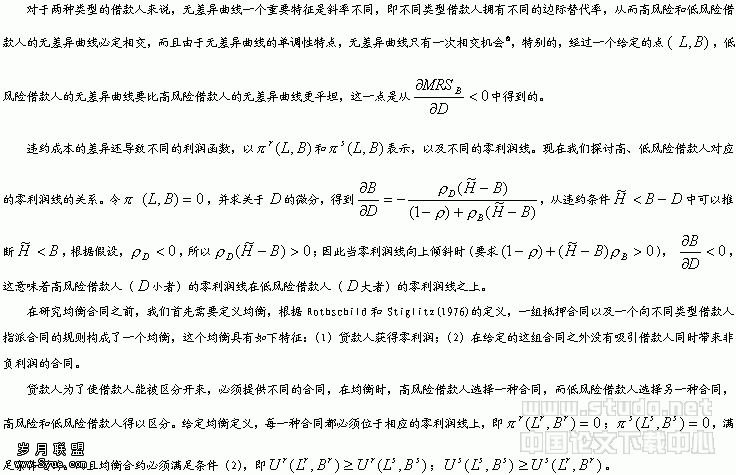 对于两种类型的借款人来说，无差异曲线一个重要特征是斜率不同，即不同类型借款人拥有不同的边际替代率，从而高风险和低风险借
款人的无差异曲线必定相交，而且由于无差异曲线的单调性特点，无差异曲线只有一次相交机会，特别的，经过一个给定的点 (L,B)，低
风险借款人的无差异曲线要比高风险借款人的无差异曲线更平坦，这一点是从 ∂MRS_B/∂D < 0 中得到的。
违约成本的差异还导致不同的利润函数，以 π^r(L,B) 和 π^s(L,B) 表示，以及不同的零利润线。现在我们探讨高、低风险借款人对应
的零利润线的关系。令 π (L,B)=0，并求关于 D 的微分，得到 ∂B/∂D = -ρ_D(H̃-B)/((1-ρ)+ρ_B(H̃-B))，从违约条件 H̃<B-D 中可以推
断 H̃<B，根据假设，ρ_D<0，所以 ρ_D(H̃-B)>0；因此当零利润线向上倾斜时(要求 (1-ρ)+(H̃-B)ρ_B>0)， ∂B/∂D<0，
这意味着高风险借款人（D小者）的零利润线在低风险借款人（D大者）的零利润线之上。
在研究均衡合同之前，我们首先需要定义均衡，根据 Rothschild 和 Stiglitz(1976)的定义，一组抵押合同以及一个向不同类型借款人
指派合同的规则构成了一个均衡，这个均衡具有如下特征：（1）贷款人获得零利润；（2）在给定的这组合同之外没有吸引借款人同时带来非
负利润的合同。
贷款人为了使借款人能被区分开来，必须提供不同的合同，在均衡时，高风险借款人选择一种合同，而低风险借款人选择另一种合同，
高风险和低风险借款人得以区分。给定均衡定义，每一种合同都必须位于相应的零利润线上，即 π^r(L^r,B^r)=0；π^s(L^s,B^s)=0，满
足条件 且均衡合约必须满足条件（2），即 U^r(L^r,B^r)≥U^r(L^s,B^s)；U^s(L^s,B^s)≥U^s(L^r,B^r)。
www.studa.net
中国论文下载中心
岁月联盟
www.Syue.com